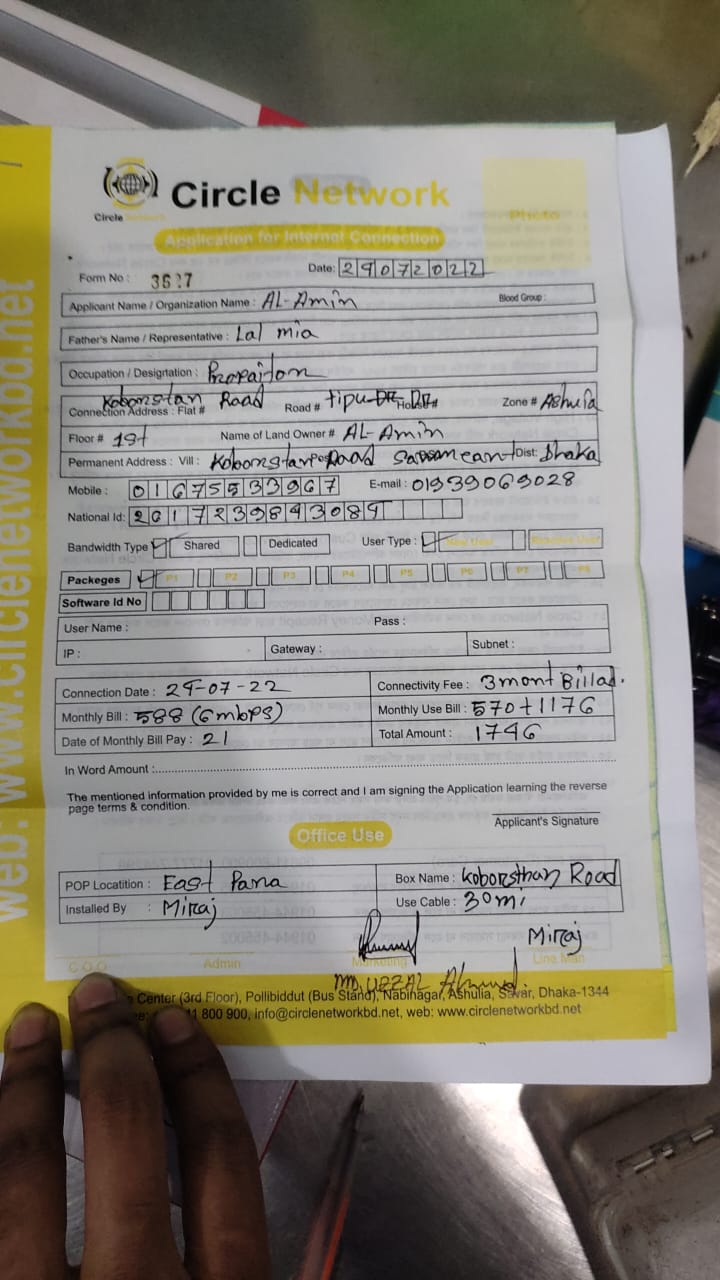 Circle Network
Circle
Photo
Application for Internet Connection
Date: 29072022
Form No : 3627
Applicant Name / Organization Name : AL-Amin Blood Group :
Father's Name / Representative : Lal mia
Occupation / Designation :
Koborstan Road
Connection Address : Flat # Road # tipu House# Zone # Ashula
Floor # 1st Name of Land Owner # AL-Amin
Permanent Address : Vill : Dist: Dhaka
Mobile : 01675533967 E-mail : 01939069028
National Id:
Bandwidth Type Shared Dedicated User Type : New User
Packeges P1 P2 P3 P4 P5 P6 P7 P8
Software Id No
User Name : Pass :
IP : Gateway : Subnet :
Connection Date : 29-07-22 Connectivity Fee : 3mont Billad.
Monthly Bill : 588 (6mbps) Monthly Use Bill : 570+1176
Date of Monthly Bill Pay : 21 Total Amount : 1746
In Word Amount :
The mentioned information provided by me is correct and I am signing the Application learning the reverse
page terms & condition.
Applicant's Signature
Office Use
POP Locatition : East Para Box Name : Koborsthan Road
Installed By : Miraj Use Cable : 30mi
Miraj
C O O Admin Marketing Line Man
MD, UZZAL Ahmed
Center (3rd Floor), Pollibiddut (Bus Stand), Nabinagar, Ashulia, Savar, Dhaka-1344
800 900, info@circlenetworkbd.net, web: www.circlenetworkbd.net
web: www.circlenetworkbd.net